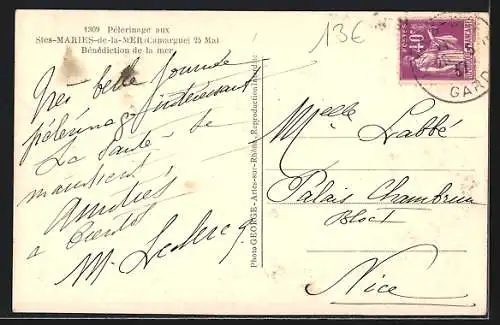 1309 Pélerinage aux
Stes-MARIES-de-la-MER (Camargue) 25 Mai
Bénédiction de la mer
13€
Très belle journée
pélerinage intéressant
La santé se
maintient
Amitiés
a bientôt
M. Leclercq
Photo GEORGE - Arles-sur-Rhône, Reproduction Interdite
Melle Labbé
Palais Chambrun
Bloc 1
Nice
POSTES
40c
GARD